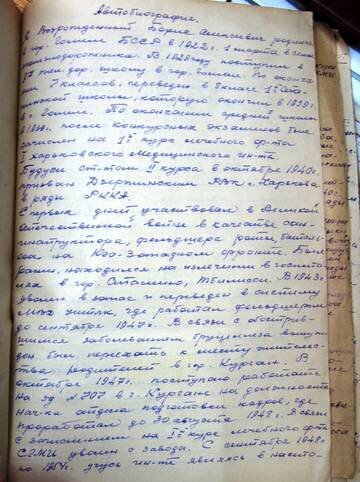 Автобиография.
Я, Возрожденный Борис Алексеевич родился
в гор. Гомеле БССР в 1922 г. 1 марта в семье
железнодорожника. В 1929 году поступил в
жел. дор. школу в гор. Гомеле. По оконча-
нии 7 классов, переведен в 8 класс
школы, которую окончил в 1939 г.
в г. Гомеле. По окончании средней школы
в 1939 г. после конкурсных экзаменов был
зачислен на 1й курс лечебного ф-та
I Харьковского Медицинского ин-та.
Будучи ст-том II курса в октябре 1940 г.
призван Дзержинским РВК г. Харькова
в ряды РККА.
С первых дней участвовал в Великой
Отечественной войне в качестве сан-
инструктора, фельдшера роты, баталь-
она на Юго-Западном фронте. Был
ранен, находился на излечении в госпита-
лях в гор. Сталино, Тбилиси. В 1943 г.
уволен в запас и переведен в систему
где работал фельдшером
до сентября 1947 г. В связи с обострив-
шимся заболеванием бруцеллеза вынуж-
ден был переехать к месту жительс-
тва родителей в гор. Курган. В
октябре 1947 г. поступаю работать
на з-д № 707 в г. Кургане на должность
нач-ка отдела подготовки кадров, где
проработал до 30 августа 1948 г. В связи
с зачислением на Iй курс лечебного ф-та
СГМИ уволен с завода. С сентября 1948 г.
по 1954 г. учусь в ин-те являясь в насто-